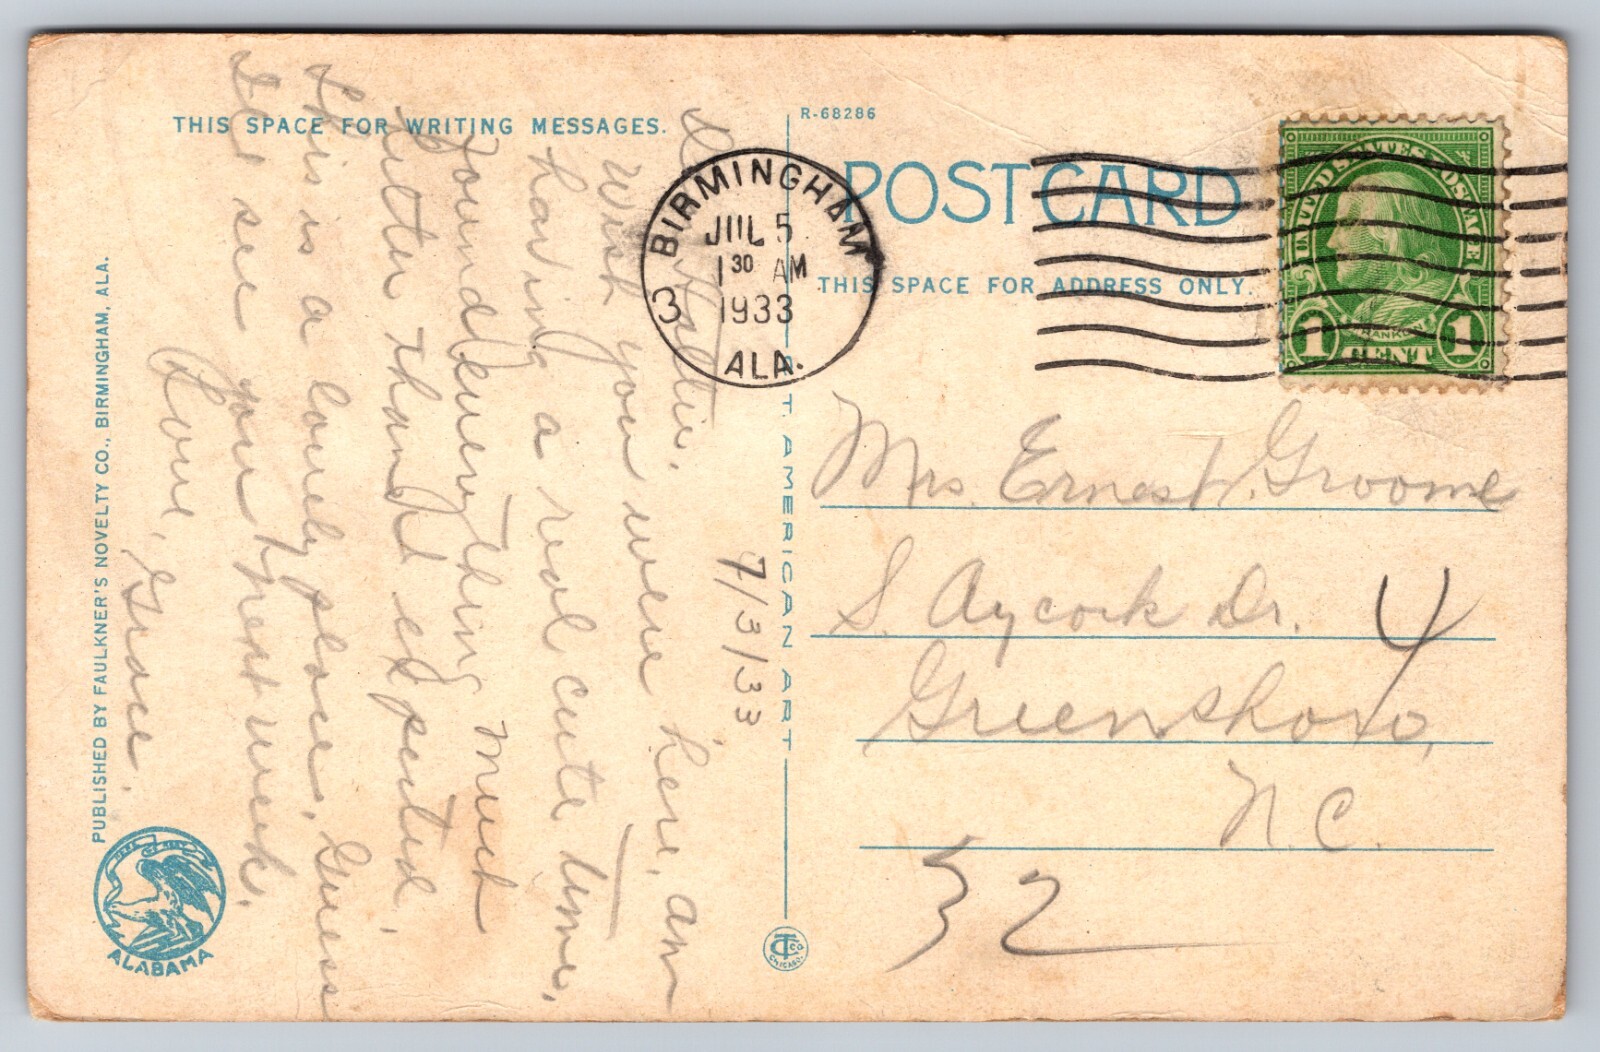 THIS SPACE FOR WRITING MESSAGES.
R-68286
POST CARD
THIS SPACE FOR ADDRESS ONLY.
BIRMINGHAM
JUL 5
1 30 AM
1933
3
ALA.
UNITED STATES POSTAGE
FRANKLIN
1 CENT 1
7/3/33
D. Hattie,
Wish you were here, am
having a real cute time,
found everything much
better than I expected,
this is a lovely place, Guess
I'll see you next week.
Love, Grace.
Mrs. Ernest Groome
S. Aycock Dr. 4
Greensboro,
N.C.
32
T. AMERICAN ART
PUBLISHED BY FAULKNER'S NOVELTY CO., BIRMINGHAM, ALA.
HERE WE REST
ALABAMA
CT CO
CHICAGO